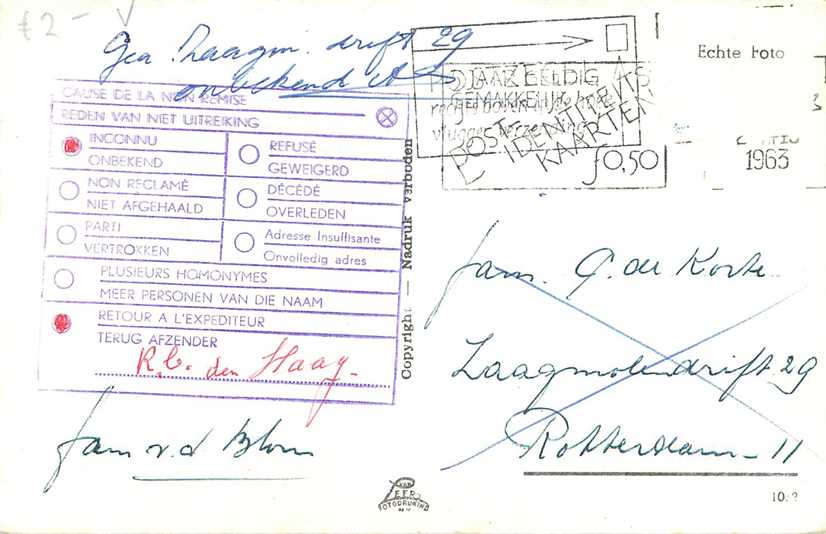 £2-
Gea. Zaagm. drift 29
onbekend
CAUSE DE LA NON REMISE
REDEN VAN NIET UITREIKING
INCONNU
ONBEKEND
REFUSÉ
GEWEIGERD
NON RECLAMÉ
NIET AFGEHAALD
DÉCÉDÉ
OVERLEDEN
PARTI
VERTROKKEN
Adresse Insuffisante
Onvolledig adres
PLUSIEURS HOMONYMES
MEER PERSONEN VAN DIE NAAM
RETOUR A L'EXPEDITEUR
TERUG AFZENDER
R.C. den Haag
Fam v.d. Blom
Copyright — Nadruk verboden
VAN LEER'S
FOTODRUKIND
N.V.
JAAR GELDIG
GEMAKKELIJK
POST
IDENTITEITS
KAARTEN
f0,50
Echte Foto
1963
Fam. G. de Korte
Zaagmolendrift 29
Rotterdam-11